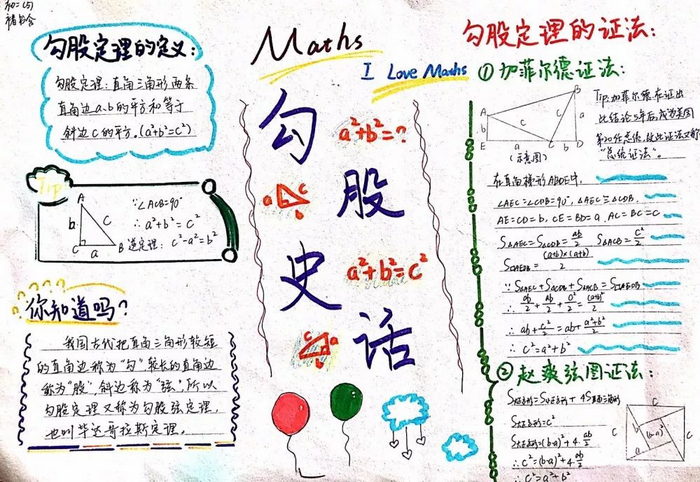 初二(5)
勾股定理的定义:
勾股定理:直角三角形两条
直角边a.b的平方和等于
斜边c的平方.(a²+b²=c²)
Tip
A
b
c
C
a
B
∵∠ACB=90°
∴a²+b²=c²
逆定理:c²-a²=b²
你知道吗?
我国古代把直角三角形较短
的直角边称为“勾”较长的直角边
称为“股”,斜边称为“弦”,所以
勾股定理又称为勾股弦定理,
也叫毕达哥拉斯定理。
Maths
I Love Maths
勾
股
史
话
a²+b²=?
a
c
a²+b²=c²
a
c
勾股定理的证法:
①加菲尔德证法:
A
B
b
c
c
a
E
a
C
b
D
(示意图)
Tip:加菲尔德在证出
此结论5年后,成为美国
第20任总统,故此证法又称
“总统证法”。
在直角梯形ABDE中,
∠AEC=∠CDB=90°,△AEC≌△CDB,
AE=CD=b,CE=BD=a,AC=BC=c
S△AEC=S△CDB=ab/2 S△ACB=c²/2
(a+b)×(a+b)
2
∵S△AEC+S△CDB+S△ACB=
∴ab/2+ab/2+c²/2=(a+b)²/2
∴ab+c²/2=ab+(a²+b²)/2
∴c²=a²+b²
②赵爽弦图证法:
=c²
=(b-a)²+4·ab/2
∴c²=(b-a)²+4·ab/2
∴c²=a²+b²
C
C
(b-a)²
b
a
C
C